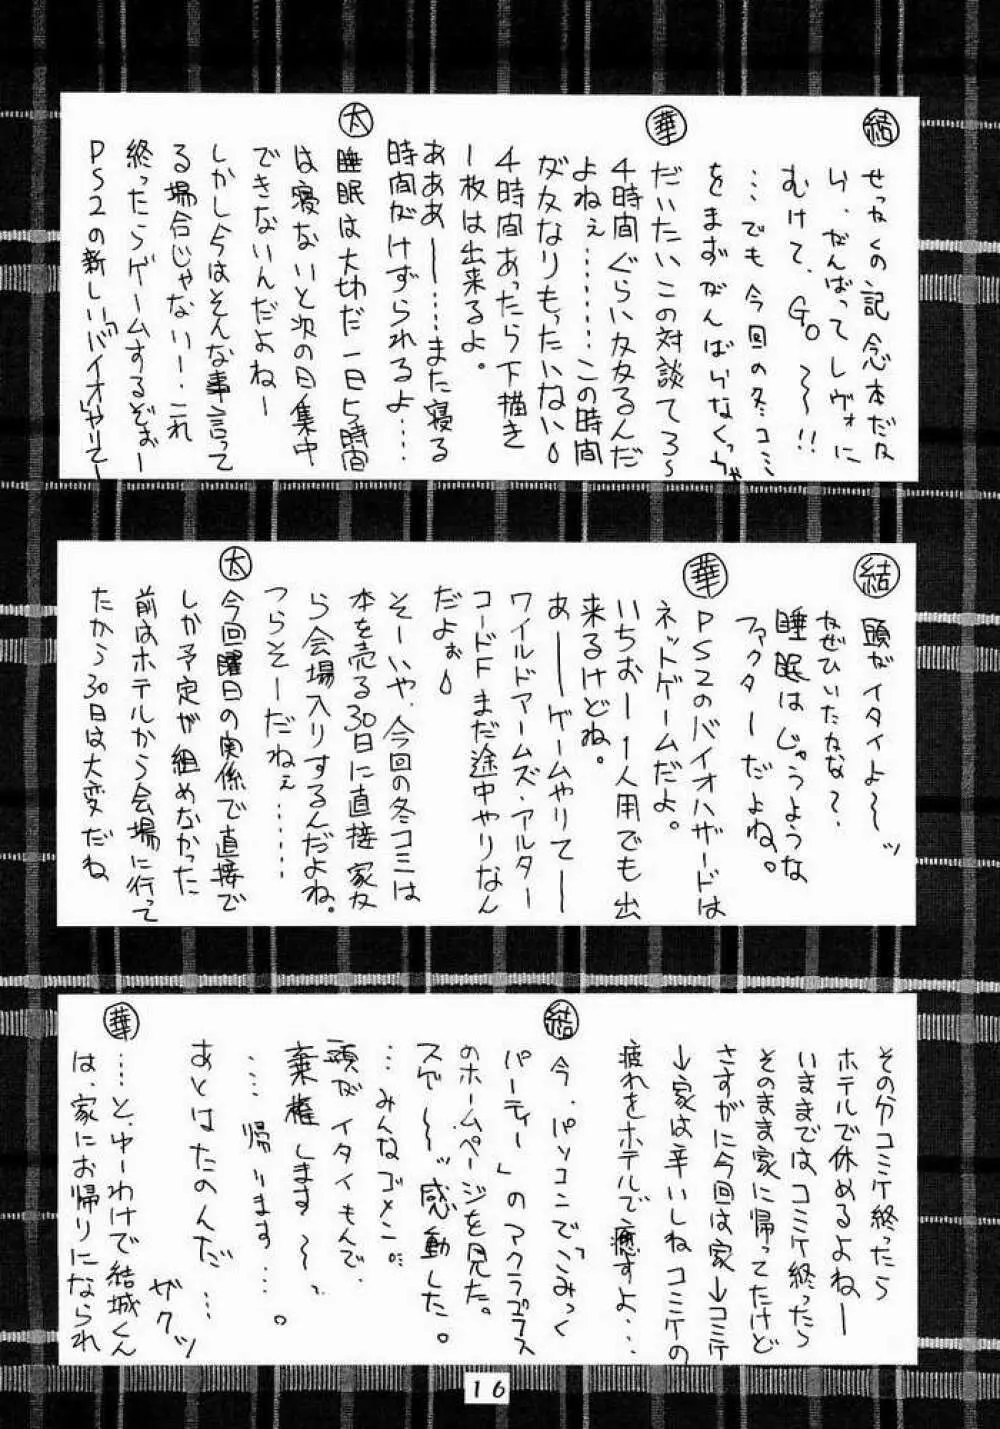 結
せっかくの記念本だな
い、がんばってレヴォに
むけて、GO〜〜!!
…でも今回の冬コミ
をまずがんばらなくっちゃ
華
だいたいこの対談てろ〜
4時間ぐらい友友るんだ
よねぇ………この時間
が友なりもったいない
4時間あったら下描き
一枚は出来るよ。
あああー……また寝る
時間がけずられるよ……
太
睡眠は大切だ一日5時間
は寝ないと次の日集中
できないんだよねー
しかし今はそんな事言って
る場合じゃないー・これ
終ったらゲームするぞぉー
PS2の新しい「バイオ」やりてー
結
頭がイタイよ〜〜ッ
かぜひいたかな?、
睡眠はじゅうような
ファクターだよね。
華
PS2のバイオハザードは
ネットゲームだよ。
いちおー1人用でも出
来るけどね。
あーーゲームやりてー
ワイルドアームズ・アルター
コードFまだ途中やりなん
だよぉ
そーいや、今回の冬コミは
本を売る30日に直接家友
ら会場入りするんだよね。
つらそーだねぇ……
太
今回曜日の関係で直接で
しか予定が組めなかった
前はホテルから会場に行って
たから30日は大変だね
その分コミケ終ったら
ホテルで休めるよねー
いままではコミケ終ったら
そのまま家に帰ってたけど
さすがに今回は家→コミケ
→家は辛いしね コミケの
疲れをホテルで癒すよ…
結
今、パソコンで「こみっく
パーティー」のアクアプラス
のホームページを見た。
スゲ〜〜ッ感動した。
…みんなゴメン。
頭がイタイもんで、
棄権します〜〜っ
…帰ります…。
あとはたのんだ…
ザクッ
華
……と、ゆーわけで結城くん
は、家にお帰りになられ
16